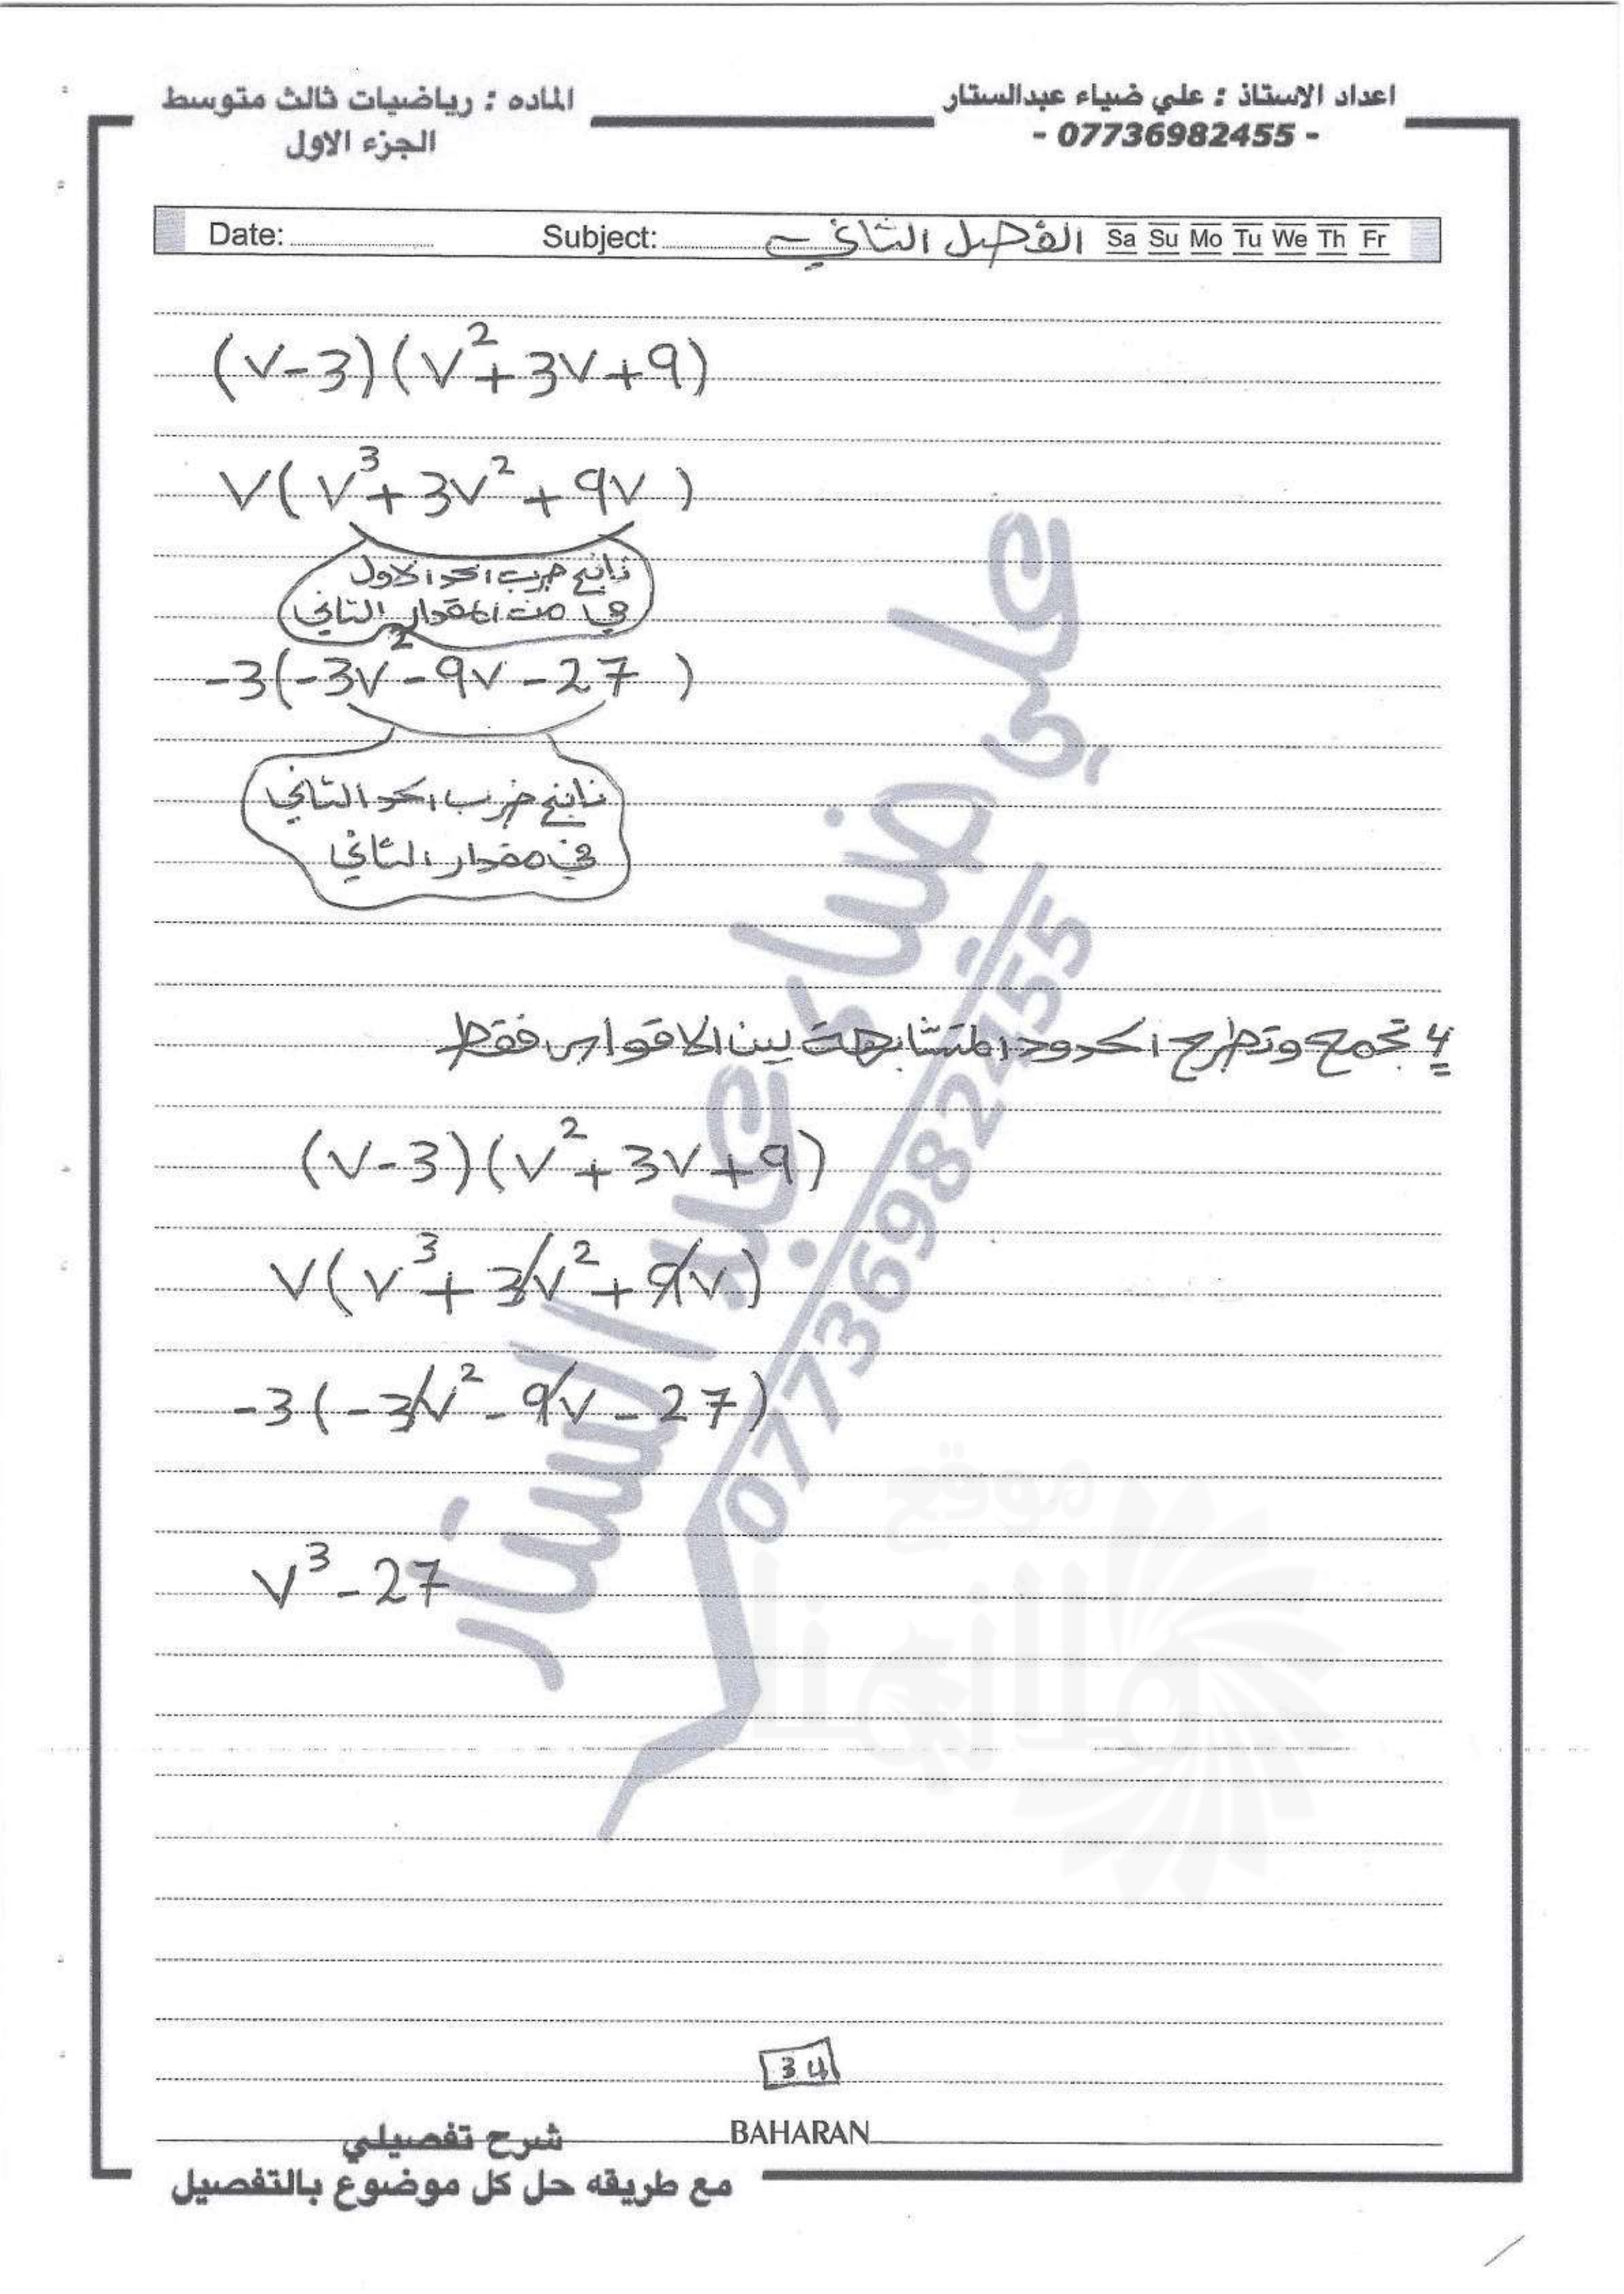 اعداد الاستاذ : علي ضياء عبدالستار
- 07736982455 -
الماده : رياضيات ثالث متوسط
الجزء الاول
Date: Subject: الفصل الثاني Sa Su Mo Tu We Th Fr
(v-3)(v²+3v+9)
v(v³+3v²+9v)
ناتج ضرب الحد الاول
في المقدار الثاني
-3(-3v²-9v-27)
ناتج ضرب الحد الثاني
في مقدار الثاني
4 تجمع وتطرح الحدود المتشابهة بين الاقواس فقط
(v-3)(v²+3v+9)
v(v³+3v²+9v)
-3(-3v²-9v-27)
v³-27
علي ضياء عبد الستار
07736982455
موقع
34
BAHARAN
شرح تفصيلي
مع طريقه حل كل موضوع بالتفصيل